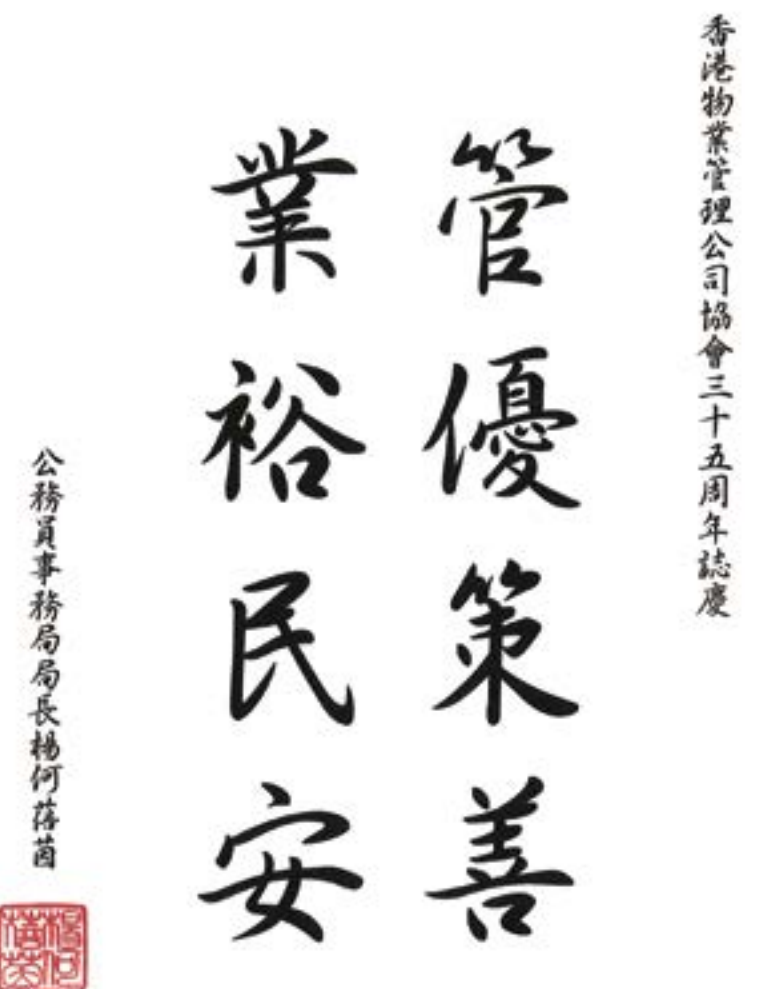 香港物業管理公司協會三十五周年誌慶
管優策善
業裕民安
公務員事務局局長楊何蓓茵
楊何蓓茵